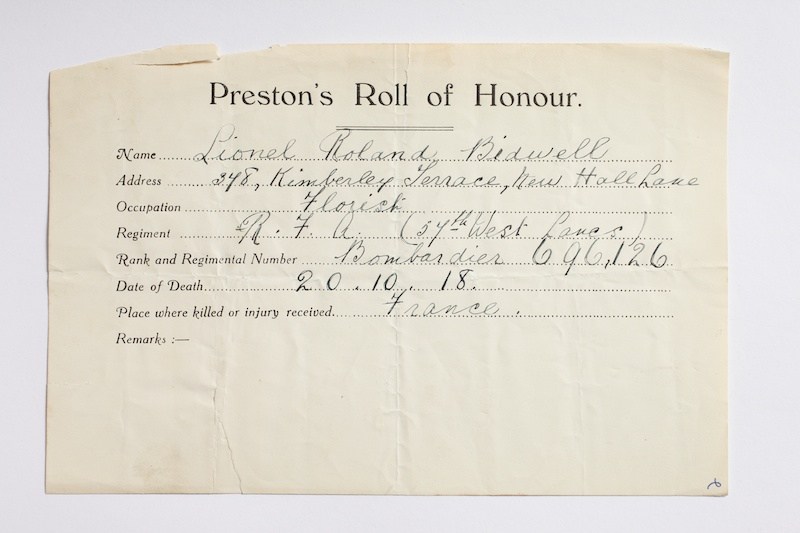 Preston's Roll of Honour.
Name Lionel Roland Bidwell
Address 378, Kimberley Terrace, New Hall Lane
Occupation Florist
Regiment R. F. A. (57th West Lancs)
Rank and Regimental Number Bombardier 696,126
Date of Death 20.10.18.
Place where killed or injury received France.
Remarks :—